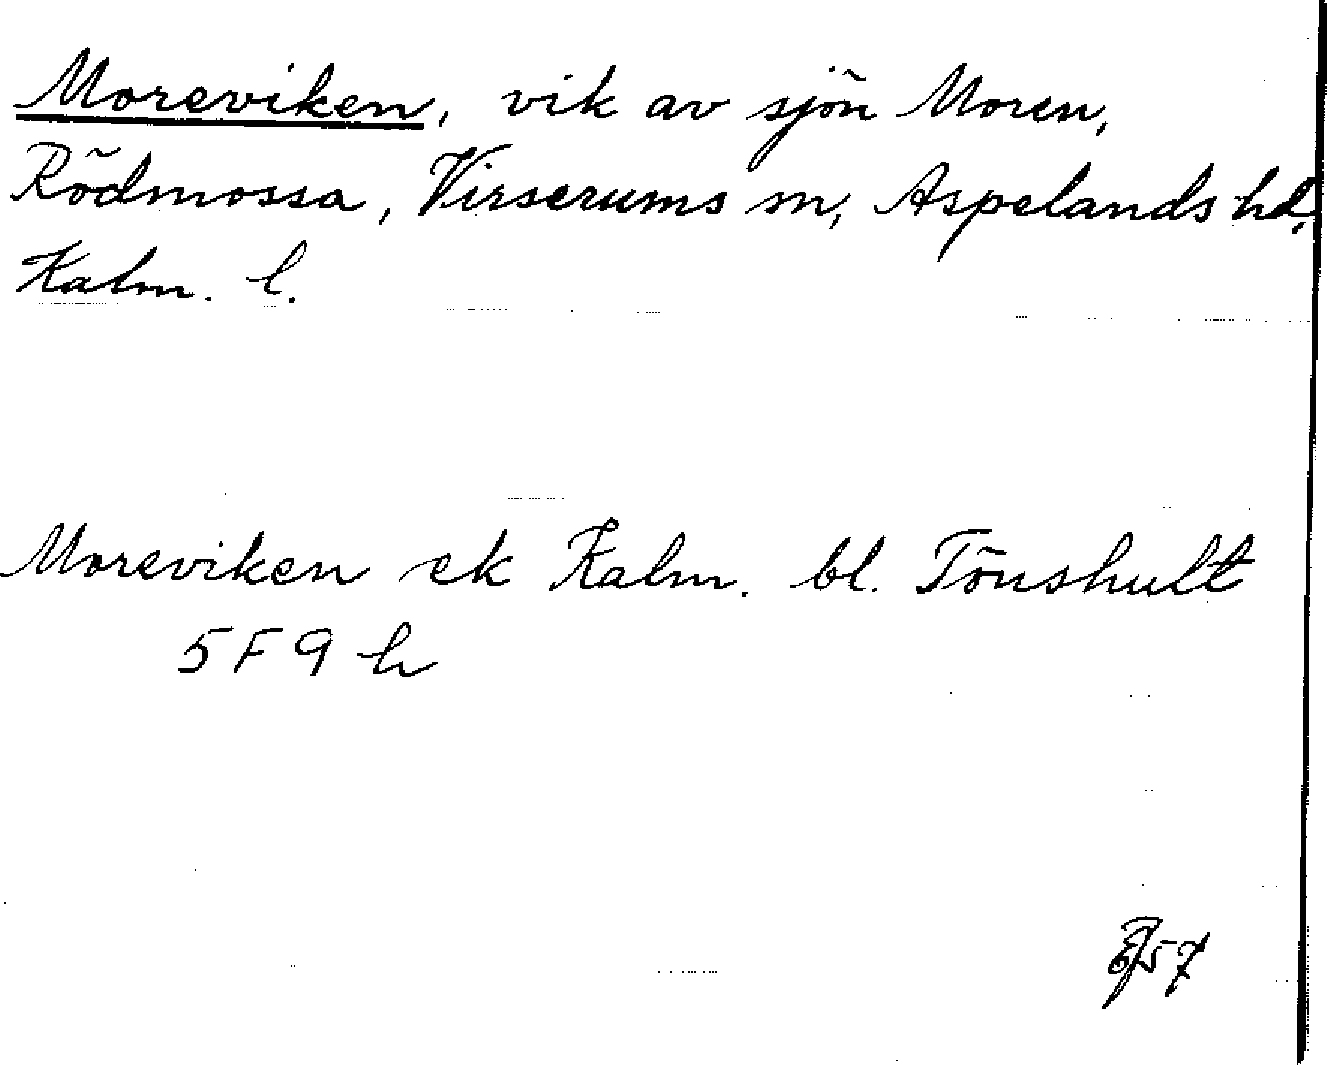 Moreviken, vik av sjön Moren,
Rödmossa, Virserums sn, Aspelands hd,
Kalm. l.
Moreviken ek Kalm. bl. Tönshult
5F 9 h
57